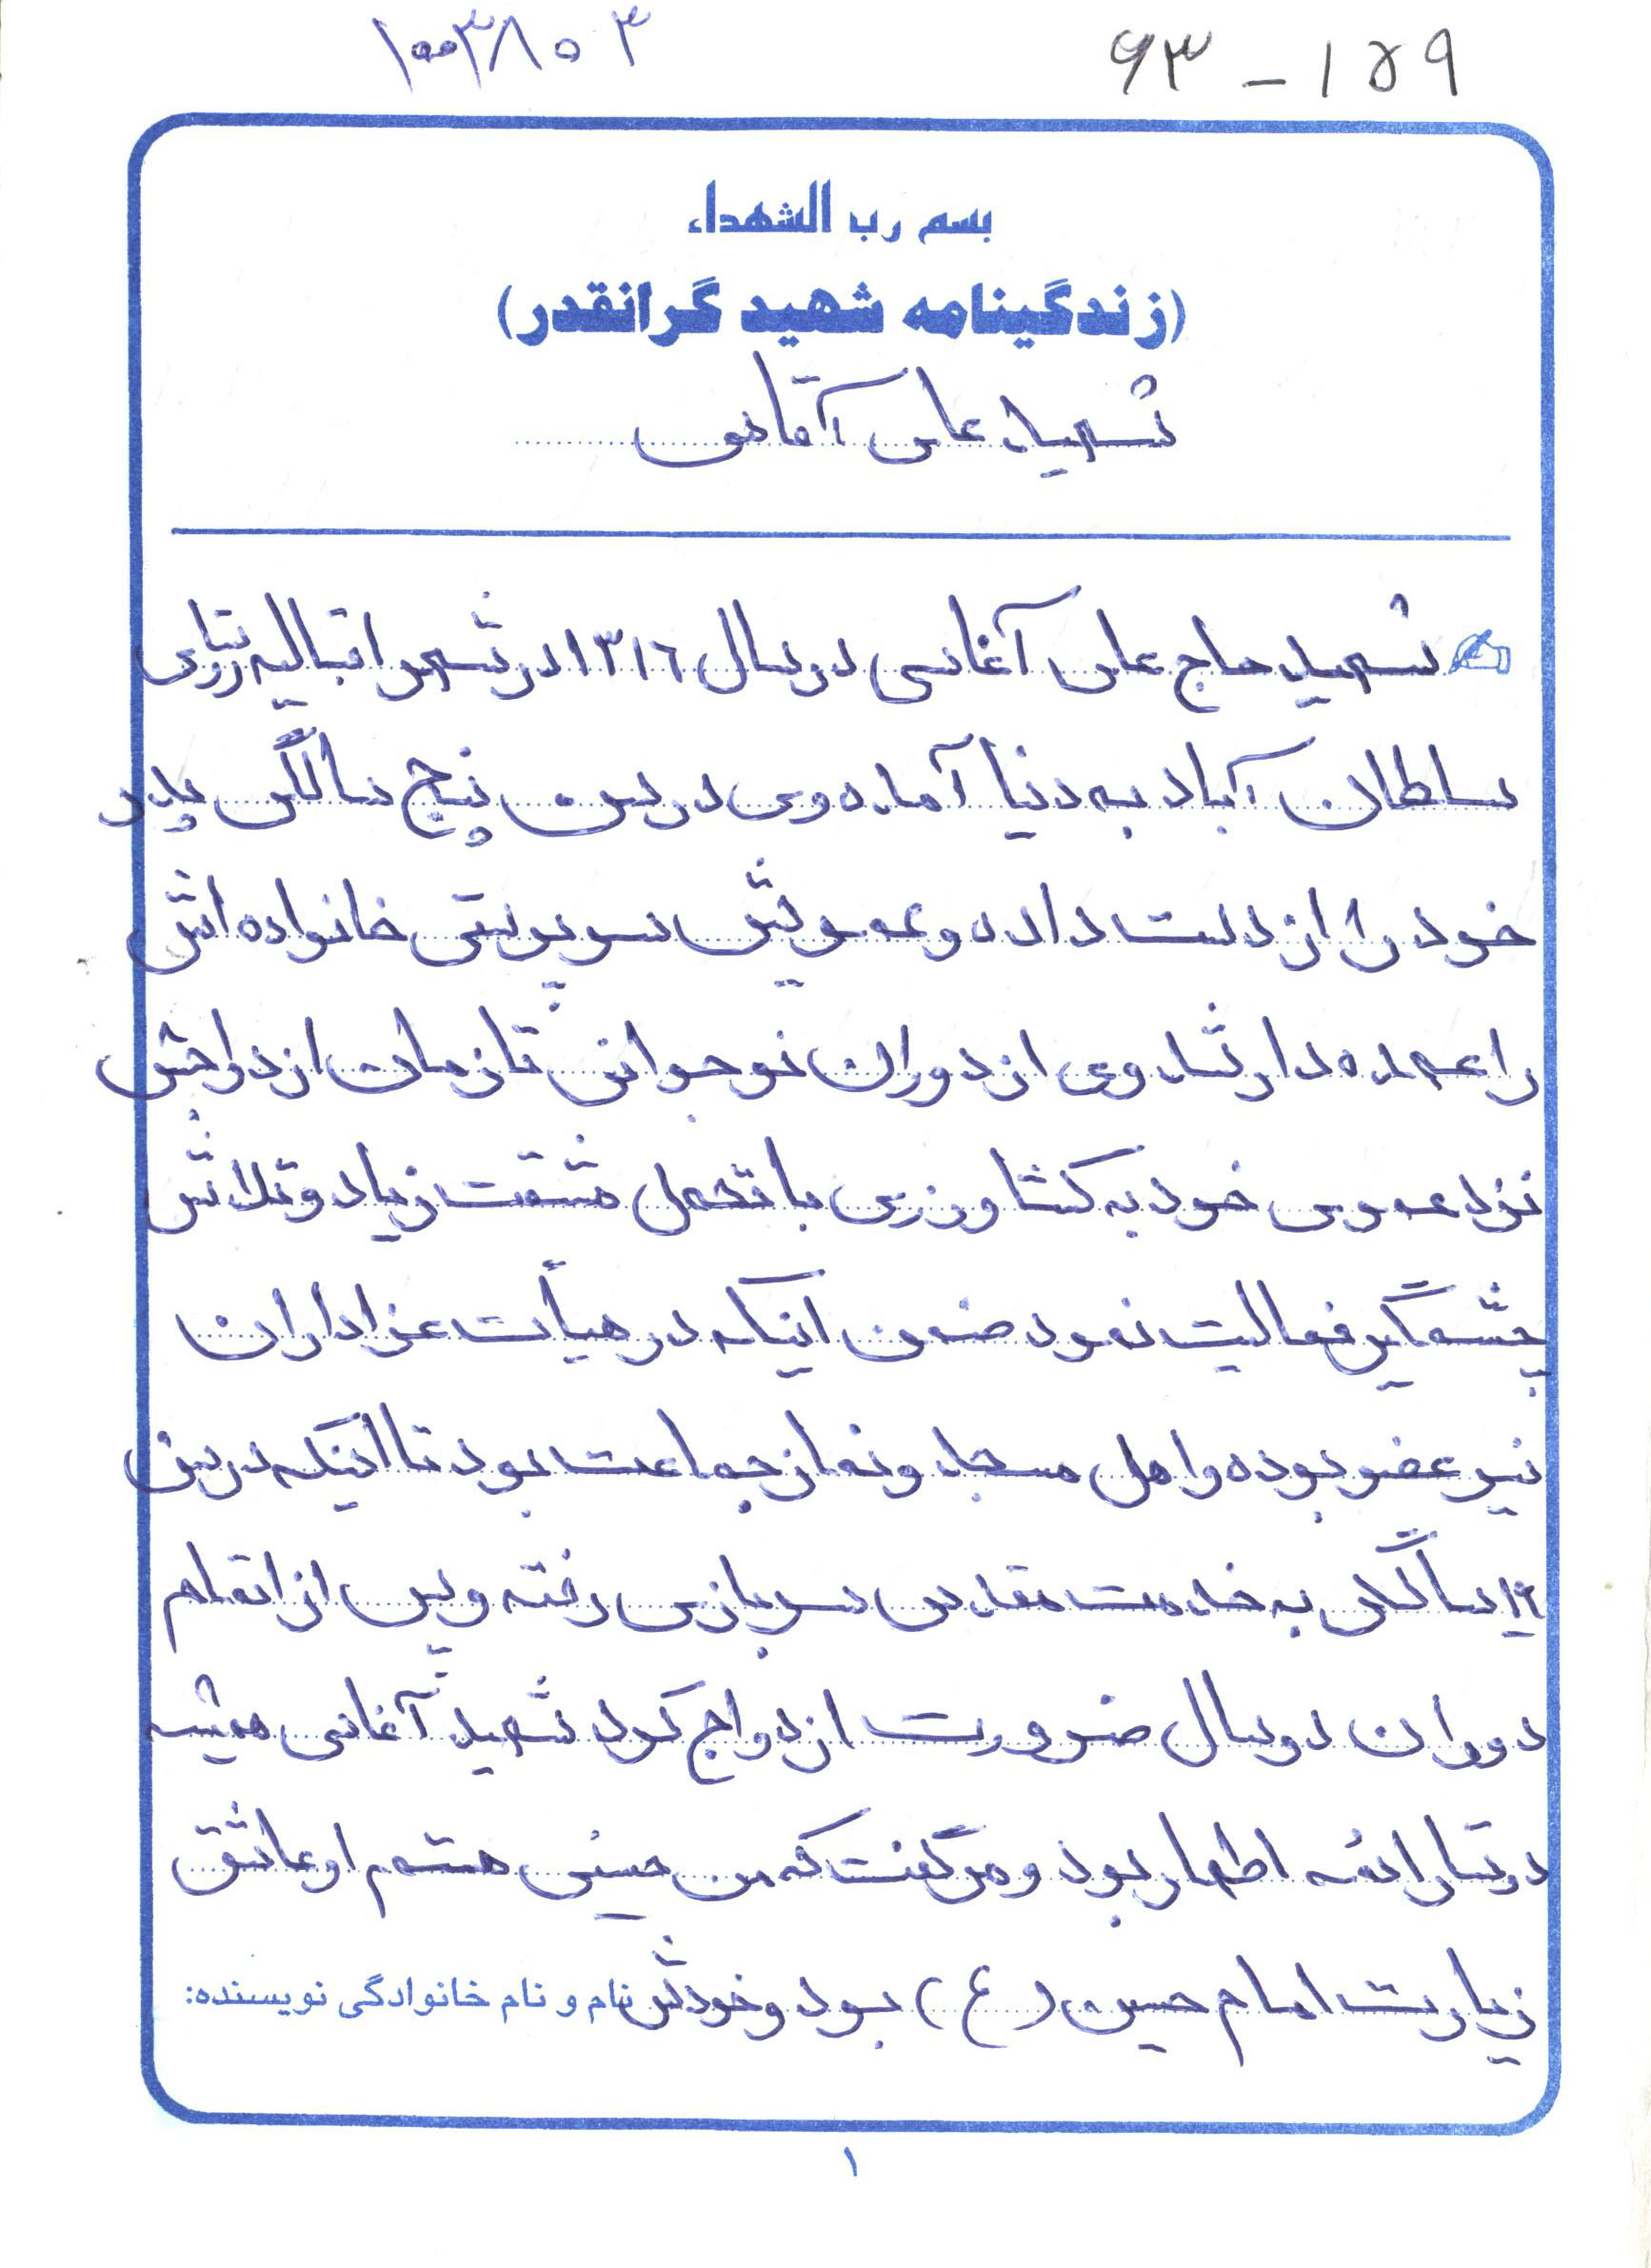 ۱۰۰۳۸۰۳
۶۳-۱۵۹
بسم رب الشهداء
(زندگینامه شهید گرانقدر)
شهید علی آقائی
شهید حاج علی آغاسی در سال ۱۳۱۶ در شهر اقبالیه روستای
سلطان آباد به دنیا آمده وی در سن پنج سالگی پدر
خود را از دست داده و عمویش سرپرستی خانواده اش
را عهده دار شد وی از دوران نوجوانی تا زمان ازدواجش
نزد عموی خود به کشاورزی با تحمل مشقت زیاد و تلاش
چشمگیر فعالیت نمود ضمن اینکه در هیأت عزاداران
نیز عضو بوده و اهل مسجد و نماز جماعت بود تا اینکه در سن
سالگی به خدمت مقدس سربازی رفته و پس از اتمام
دوران دو سال ضرورت ازدواج کرد شهید آغاسی همیشه
در کنار ائمه اطهار بود و می گفت که من حسینی هستم او عاشق
زیارت امام حسین (ع) بود و خودش
نام و نام خانوادگی نویسنده:
۱